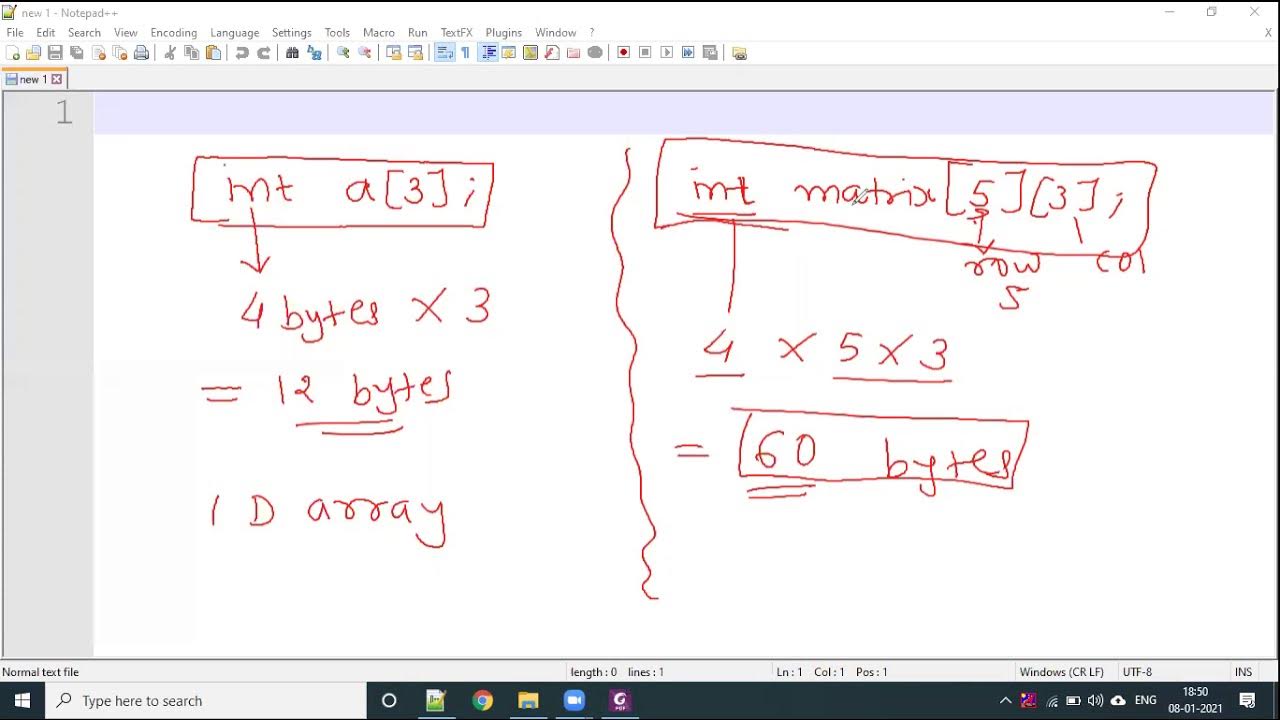 new 1 - Notepad++
File Edit Search View Encoding Language Settings Tools Macro Run TextFX Plugins Window ? X
new 1
1
int a[3];
4 bytes X 3
= 12 bytes
1 D array
int matrix[5][3];
row col
5
4 X 5 X 3
= 60 bytes
Normal text file length : 0 lines : 1 Ln : 1 Col : 1 Pos : 1 Windows (CR LF) UTF-8 INS
Type here to search ENG 18:50
08-01-2021